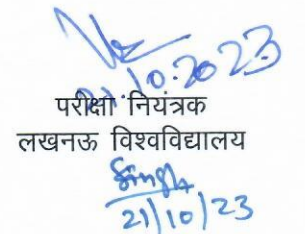 21.10.2023
परीक्षा नियंत्रक
लखनऊ विश्वविद्यालय
Singh
21/10/23